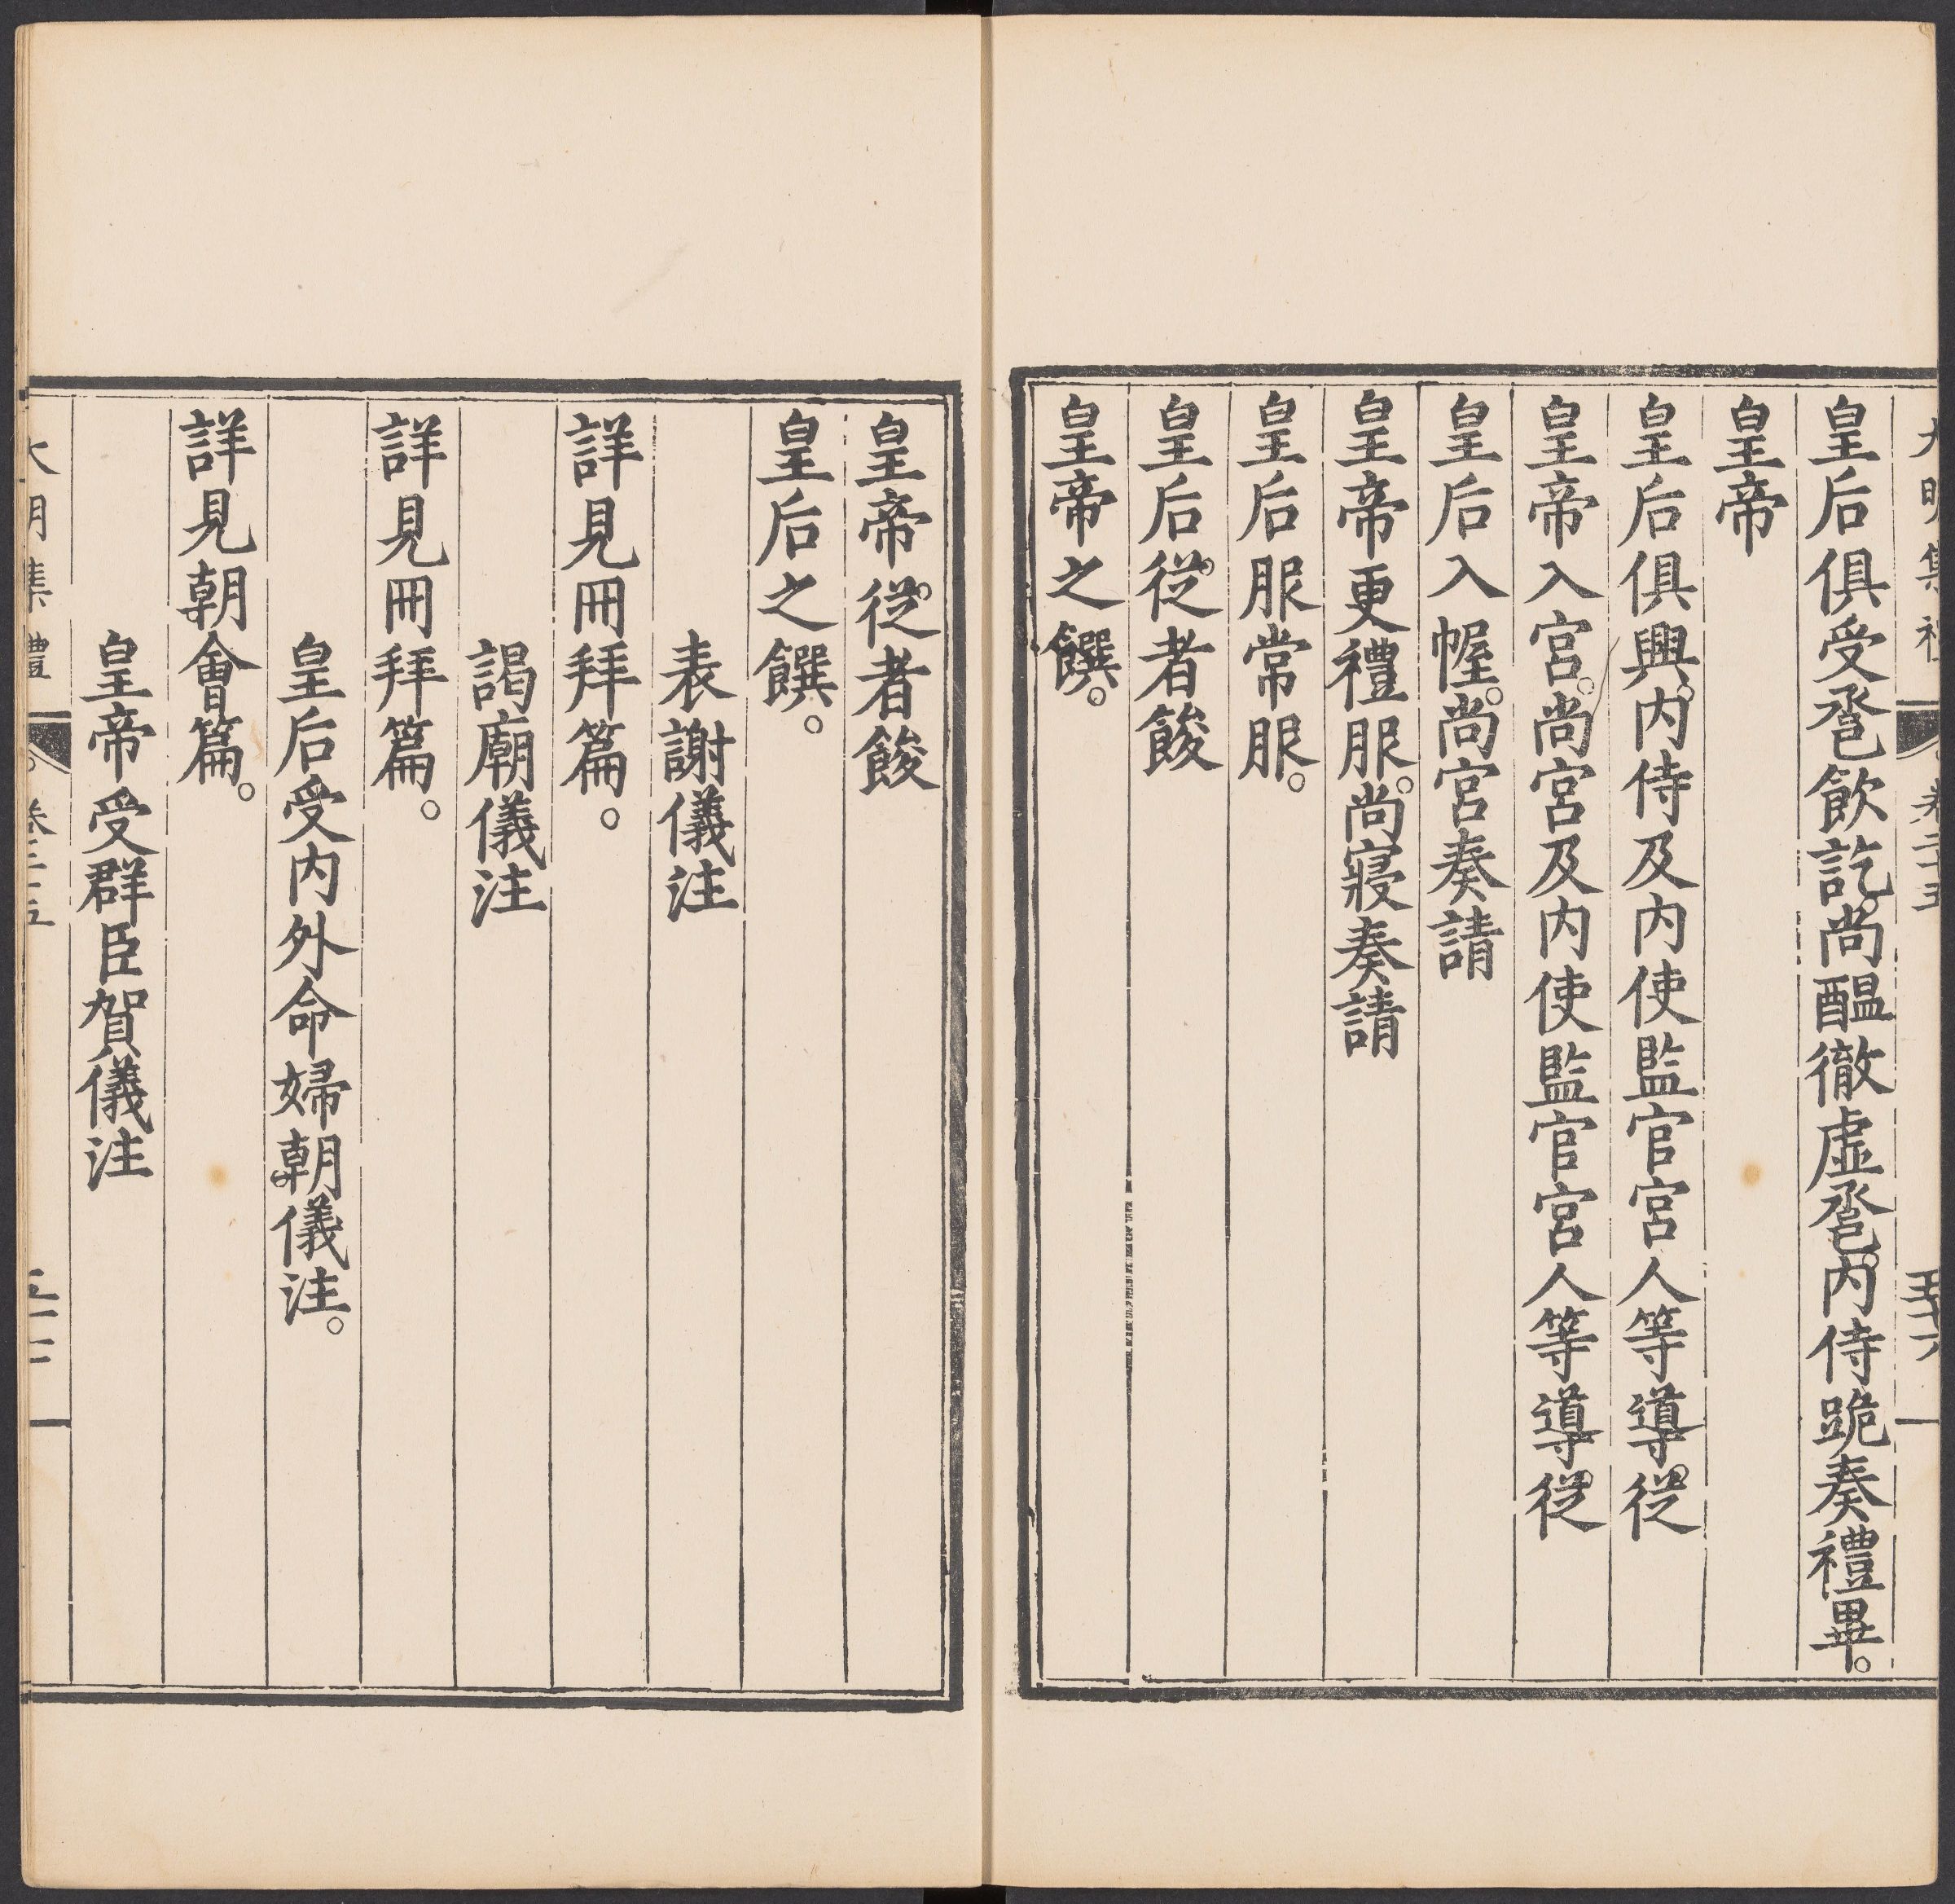 大明集禮 卷二十五 五十六
皇后俱受卺飲訖。尚醖徹虛卺。内侍跪奏禮畢。
皇帝
皇后俱興。内侍及内使監官宮人等導從
皇帝入宮。尚宮及内使監官宮人等導從
皇后入幄。尚宮奏請
皇帝更禮服。尚寢奏請
皇后服常服。
皇后從者餕
皇帝之饌。
皇帝從者餕
皇后之饌。
表謝儀注
詳見冊拜篇。
謁廟儀注
詳見冊拜篇。
皇后受内外命婦朝儀注。
詳見朝會篇。
皇帝受群臣賀儀注
大明集禮 卷二十五